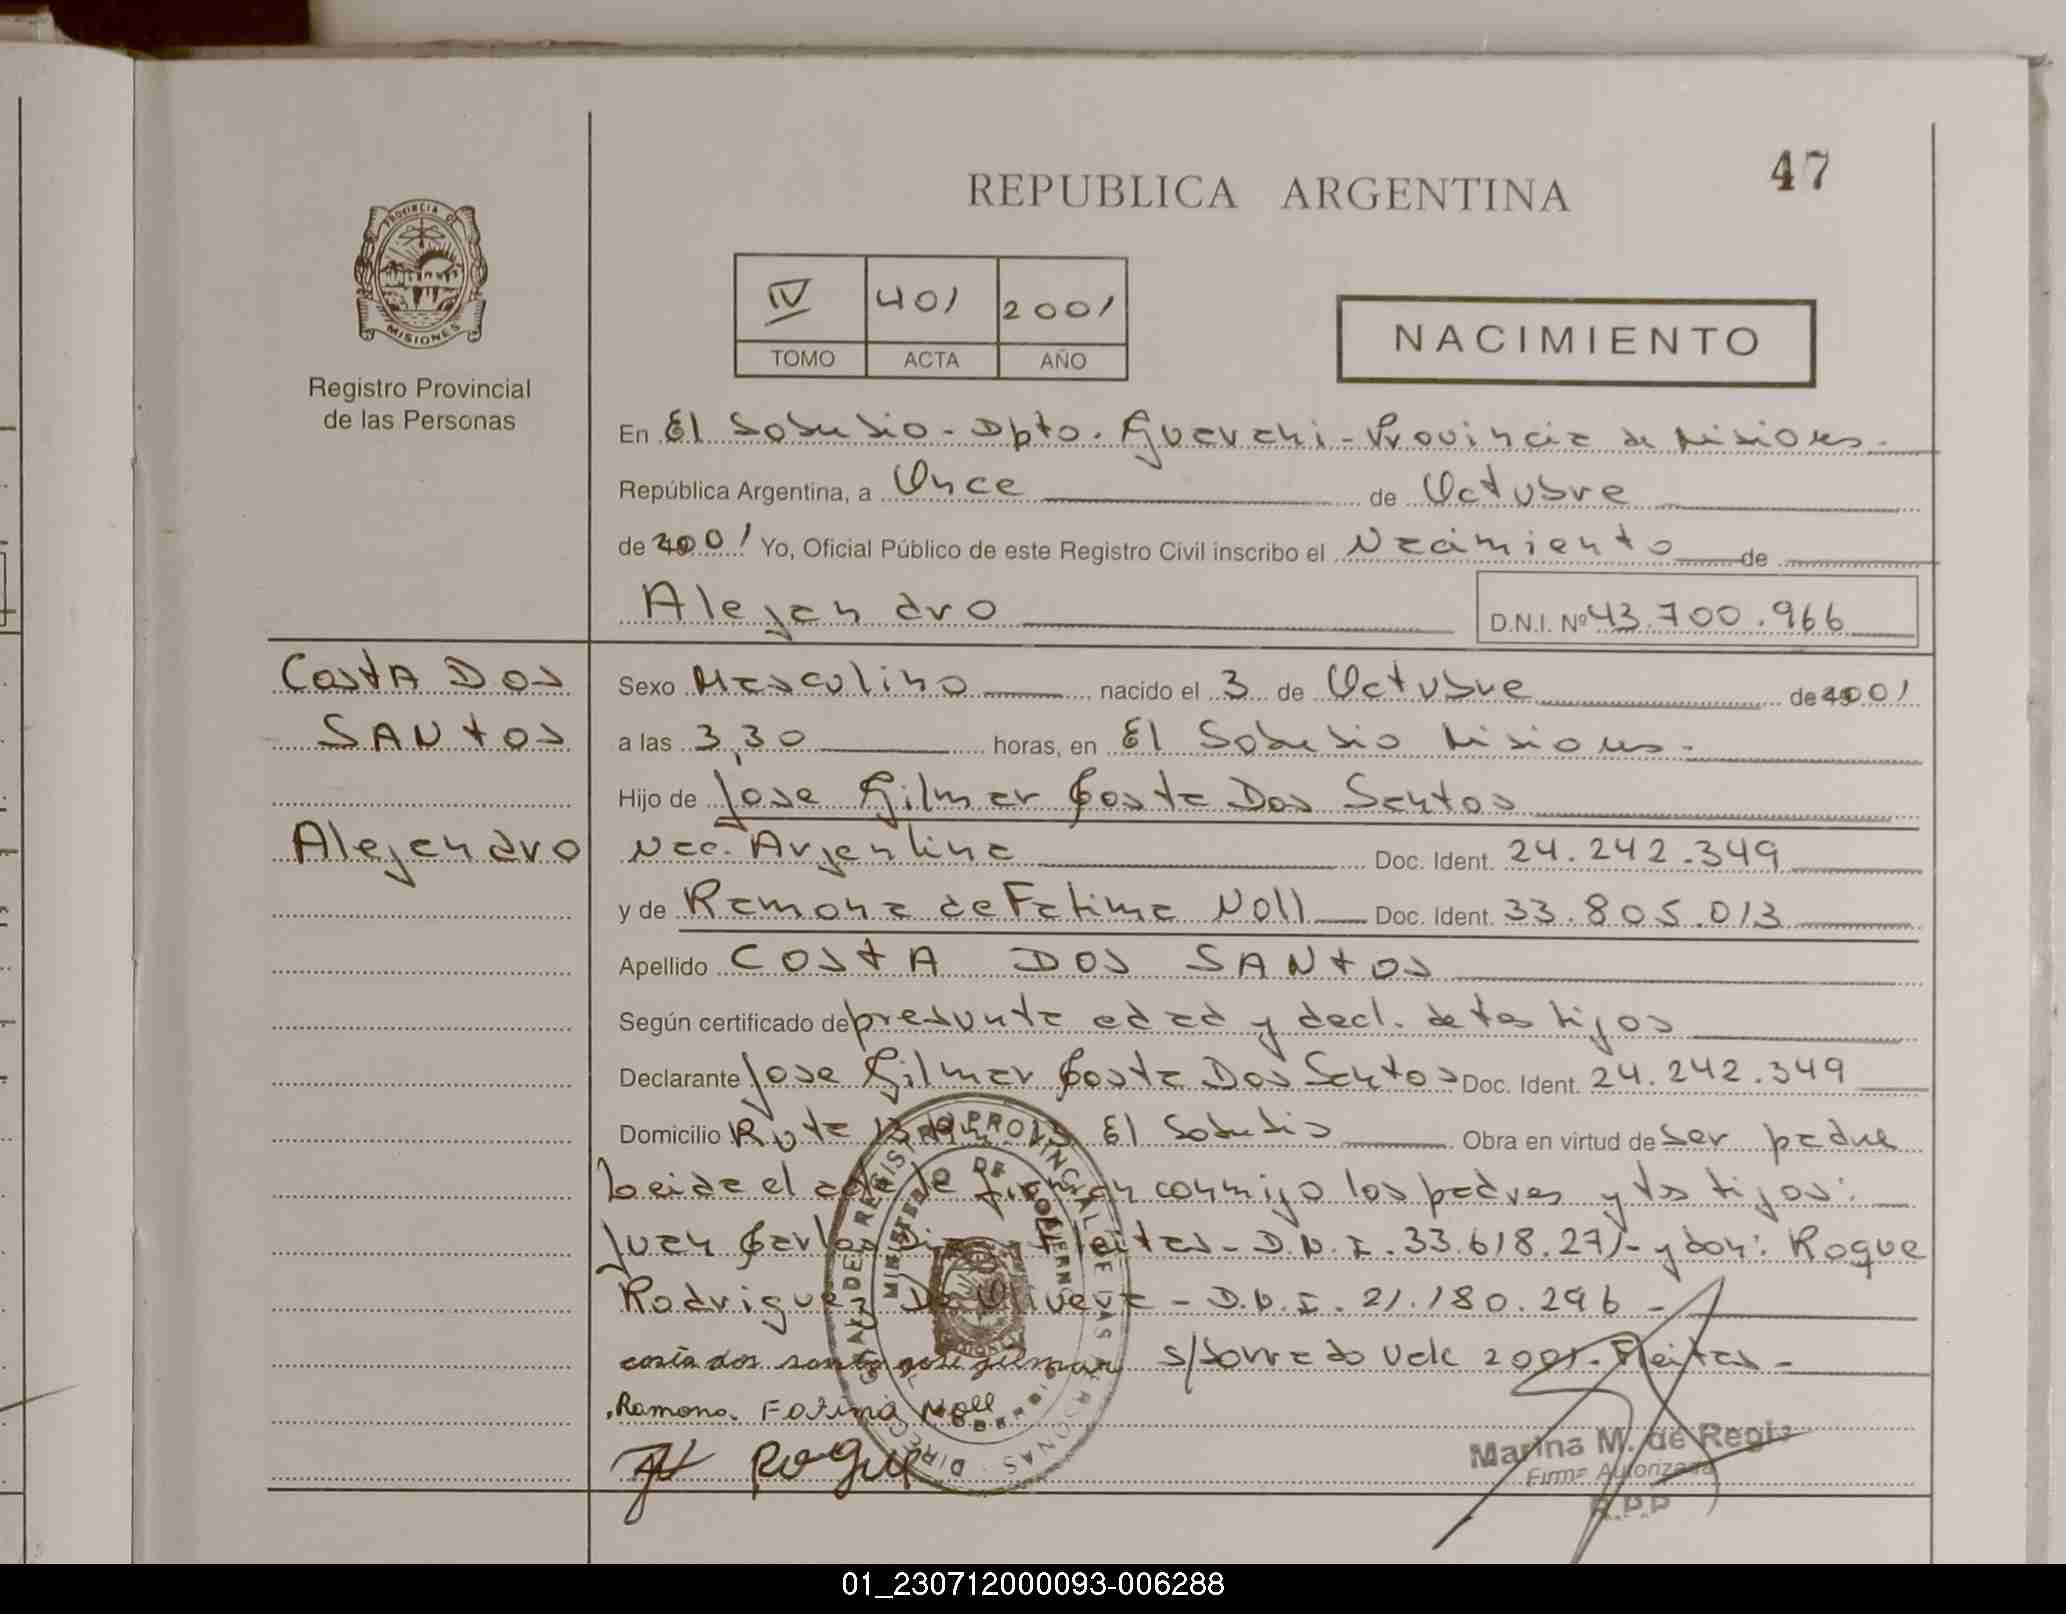 47
REPUBLICA ARGENTINA
PROVINCIA DE
MISIONES
Registro Provincial
de las Personas
IV 401 2001
TOMO ACTA AÑO
NACIMIENTO
En El Soberbio - Dpto. Guarani - Provincia de Misiones -
República Argentina, a Once de Octubre
de 2001 Yo, Oficial Público de este Registro Civil inscribo el Nacimiento de
Alejandro D.N.I. Nº 43.700.966
Costa Dos
Santos
Alejandro
Sexo Masculino nacido el 3 de Octubre de 2001
a las 3,30 horas, en El Soberbio Misiones -
Hijo de Jose Gilmar Costa Dos Santos
Nac. Argentina Doc. Ident. 24.242.349
y de Ramona de Fatima Noll Doc. Ident. 33.805.013
Apellido COSTA DOS SANTOS
Según certificado de presunta edad y decl. de tes tigos
Declarante Jose Gilmar Costa Dos Santos Doc. Ident. 24.242.349
Domicilio Ruta 13 El Soberbio Obra en virtud de ser padre
Leida el acta la firman conmigo los padres y tes tigos:
Juan Carlos Fleitas - D.N.I. 33.618.271 - y don: Roque
Rodriguez De Olivera - D.N.I. 21.180.296 -
costa dos santo jose gilmar s/borrado Vale 2001 - Fleitas -
Ramona Fatima Noll
Roque
DIRECC. GRAL DEL REGISTRO PROVINCIAL DE LAS PERSONAS
MINISTERIO DE GOBIERNO
Marina M. de Regis
Firma Autorizada
R.P.P
01_230712000093-006288